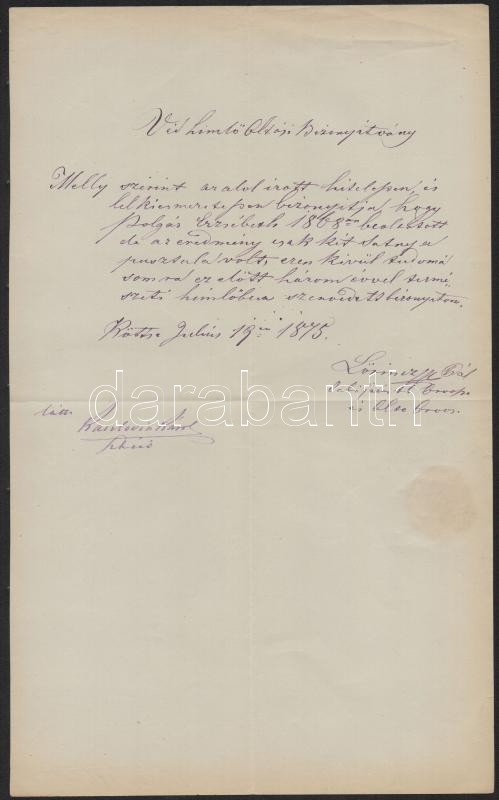 Véd himlő Oltási Bizonyítvány
Melly szerint az alol irott hitelepen, és
lelkiesmeretepen bizonyitja, hogy
Polgás Erzsébeth 1868 beoltatott
de az eredmény csak két satnya
pustula volt, ezen kívül tudomá
somra ez előtt három évvel termé
szeti himlőben szenvedett bizonyitom.
Köttse Julius 19én 1875.
darabanth
Pál
és Oltó Orvos.